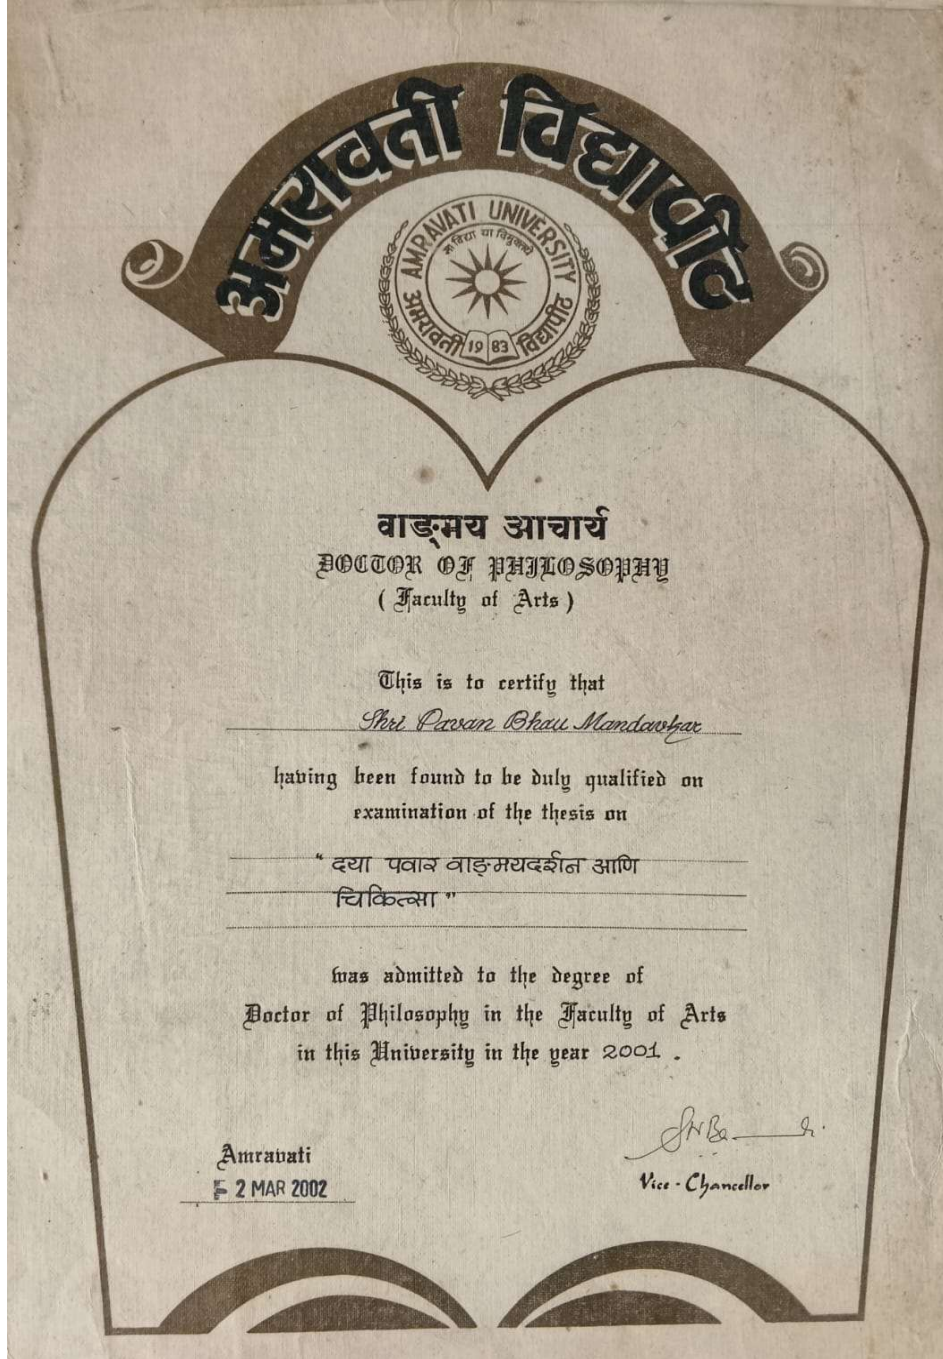 अमरावती विद्यापीठ
AMRAVATI UNIVERSITY
सा विद्या या विमुक्तये
अमरावती विद्यापीठ
1983
वाङ्‌मय आचार्य
DOCTOR OF PHILOSOPHY
( Faculty of Arts )
This is to certify that
Shri Pavan Bhau Mandavkar
having been found to be duly qualified on
examination of the thesis on
" दया पवार वाङ्‌मयदर्शन आणि
चिकित्सा "
was admitted to the degree of
Doctor of Philosophy in the Faculty of Arts
in this University in the year 2001 .
Amravati
2 MAR 2002
Vice - Chancellor